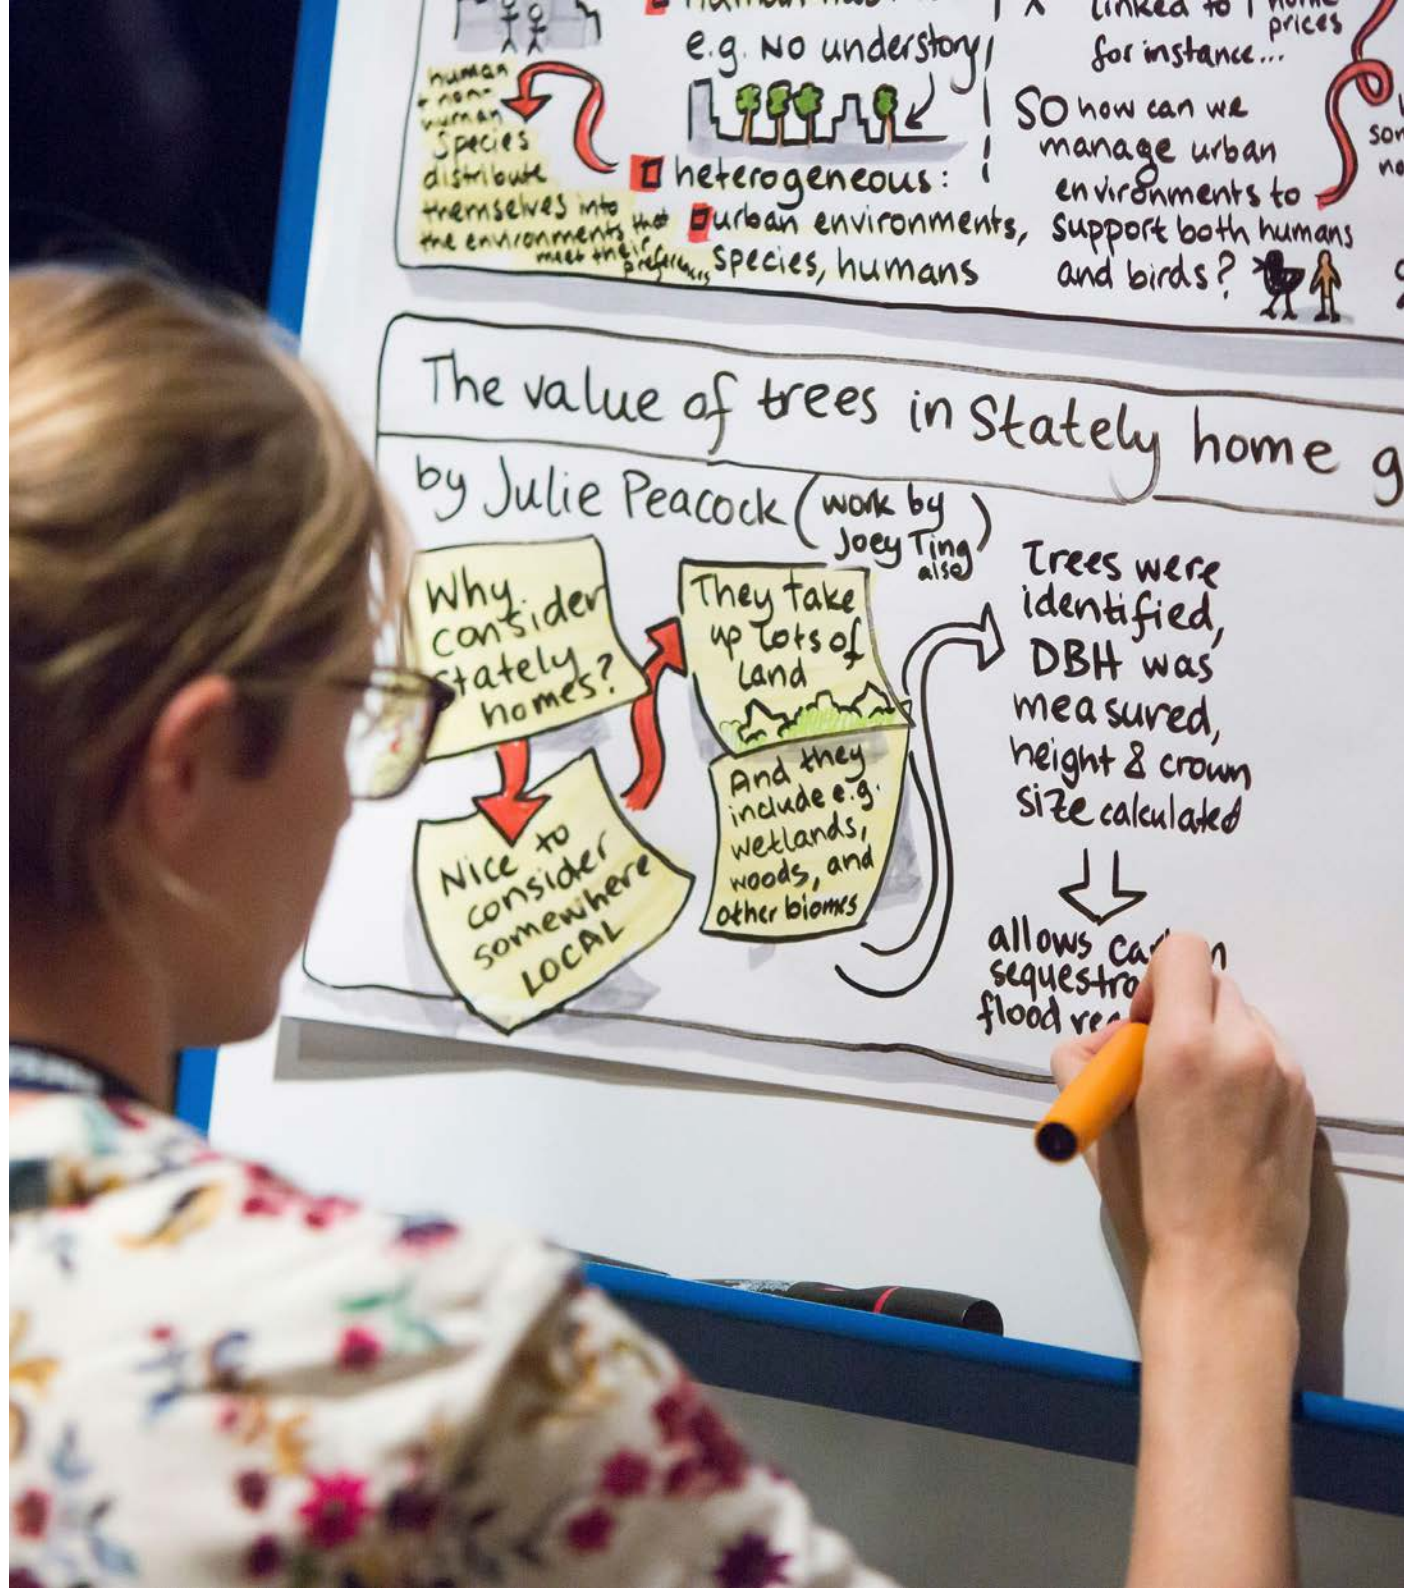 e.g. No understory
human
+ non-
human
species
distribute
themselves into
the environments that
meet their
heterogeneous:
urban environments,
species, humans
linked to
prices
for instance...
So how can we
manage urban
environments to
support both humans
and birds?
The value of trees in Stately home g
by Julie Peacock (work by
Joey Ting
also)
Why
consider
stately
homes?
Nice to
consider
somewhere
LOCAL
They take
up lots of
land
And they
include e.g.
wetlands,
woods, and
other biomes
Trees were
identified,
DBH was
measured,
height & crown
size calculated
allows
flood